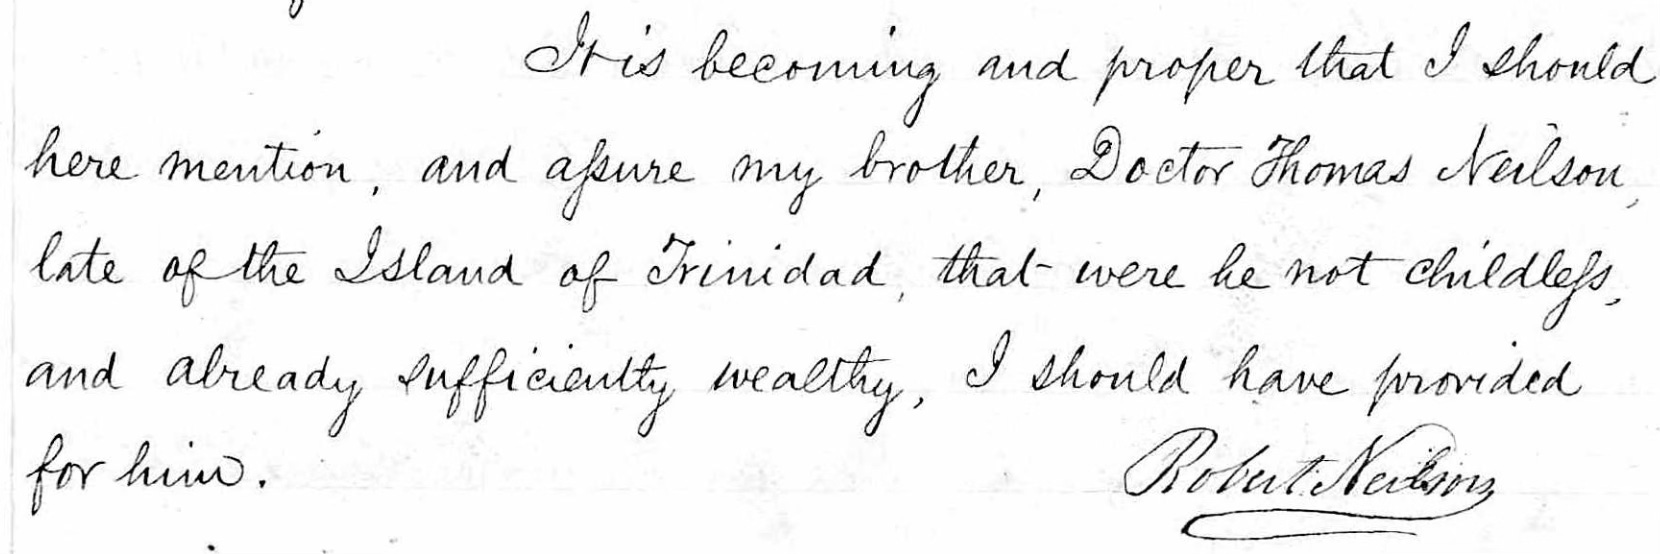 It is becoming and proper that I should
here mention, and aſsure my brother, Doctor Thomas Neilson,
late of the Island of Trinidad, that were he not childleſs,
and already sufficiently wealthy, I should have provided
for him. Robert Neilson